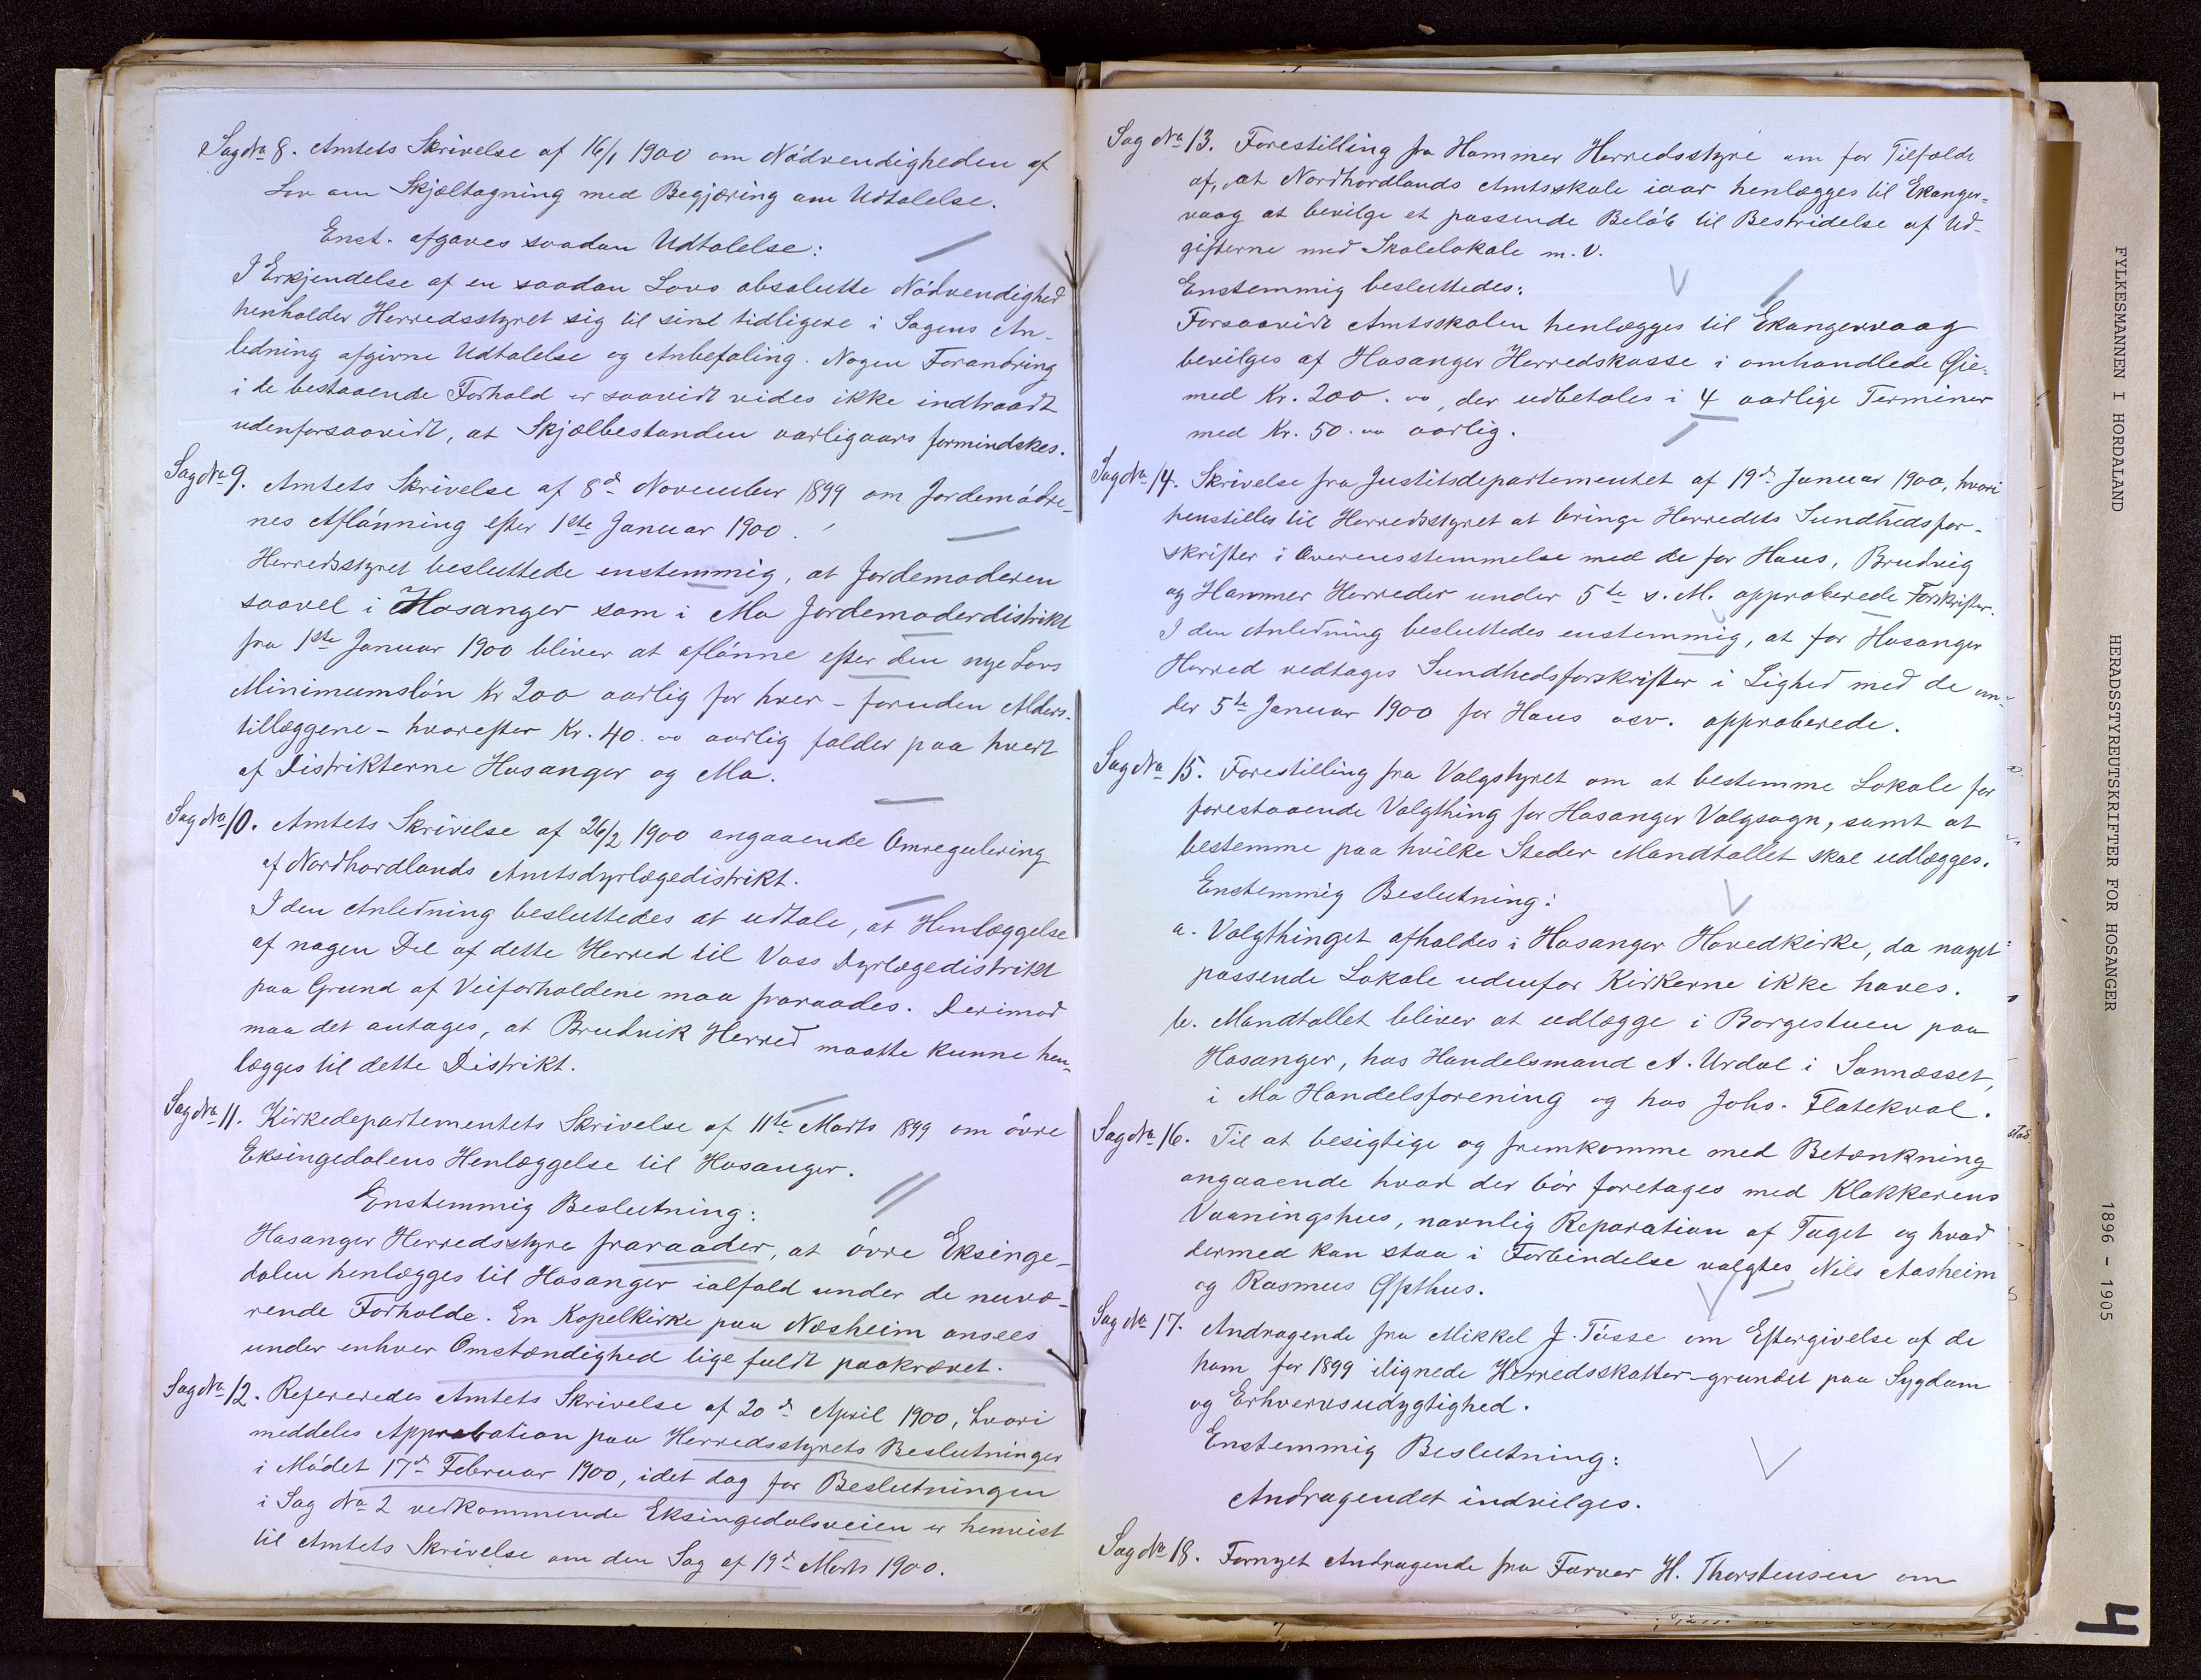 Sag No 8. Amtets Skrivelse af 16/1 1900 om Nødvendigheden af
Lov om Skjæltagning med Begjæring om Udtalelse.
Enst. afgaves saadan Udtalelse:
I Erkjendelse af en saadan Lovs absolutte Nødvendighed
henholder Herredsstyret sig til sine tidligere i Sagens An-
ledning afgivne Udtalelse og Anbefaling. Nogen Forandring
i de bestaaende Forhold er saavidt vides ikke indtraadt
udenforsaavidt, at Skjælbestanden aarligaars formindskes.
Sag No 9. Amtets Skrivelse af 8d November 1899 om Jordemødre-
nes Aflønning efter 1ste Januar 1900.
Herredsstyret besluttede enstemmig, at Jordemoderen
saavel i Hosanger som i Mo Jordemoderdistrikt
fra 1ste Januar 1900 bliver at aflønne efter den nye Lovs
Minimumsløn Kr 200 aarlig for hver - foruden Alders-
tillæggene - hvorefter Kr. 40.00 aarlig falder paa hvert
af Distrikterne Hosanger og Mo.
Sag No 10. Amtets Skrivelse af 26/2 1900 angaaende Omregulering
af Nordhordlands Amtsdyrlægedistrikt.
I den Anledning besluttedes at udtale, at Henlæggelse
af nogen Del af dette Herred til Voss Dyrlægedistrikt
paa Grund af Veiforholdene maa fraraades. Derimod
maa det antages, at Brudvik Herred maatte kunne hen-
lægges til dette Distrikt.
Sag No 11. Kirkedepartementets Skrivelse af 11te Marts 1899 om øvre
Eksingedalens Henlæggelse til Hosanger.
Enstemmig Beslutning:
Hosanger Herredsstyre fraraader, at øvre Eksinge-
dalen henlægges til Hosanger ialfald under de nuvæ-
rende Forholde. En Kapelkirke paa Næsheim ansees
under enhver Omstændighed lige fuldt paakrævet.
Sag No 12. Refereredes Amtets Skrivelse af 20d April 1900, hvori
meddeles Approbation paa Herredsstyrets Beslutninger
i Mødet 17d Februar 1900, idet dog for Beslutningen
i Sag No 2 vedkommende Eksingedalsveien er henvist
til Amtets Skrivelse om den Sag af 19d Marts 1900.
Sag No 13. Forestilling fra Hammer Herredsstyre om for Tilfælde
af, at Nordhordlands Amtsskole iaar henlægges til Ekanger-
vaag at bevilge et passende Beløb til Bestridelse af Ud-
gifterne med Skolelokale m.v.
Enstemmig besluttedes:
Forsaavidt Amtsskolen henlægges til Ekangervaag
bevilges af Hosanger Herredskasse i omhandlede Øie-
med Kr. 200.00, der udbetales i 4 aarlige Terminer
med Kr. 50.00 aarlig.
Sag No 14. Skrivelse fra Justitsdepartementet af 19d Januar 1900, hvori
henstilles til Herredsstyret at bringe Herredets Sundhedsfor-
skrifter i Overensstemmelse med de for Haus, Brudvig
og Hammer Herreder under 5te s. M. approberede Forskrifter.
I den Anledning besluttedes enstemmig, at for Hosanger
Herred vedtages Sundhedsforskrifter i Lighed med de un-
der 5te Januar 1900 for Haus osv. approberede.
Sag No 15. Forestilling fra Valgstyret om at bestemme Lokale for
forestaaende Valgthing for Hosanger Valgsogn, samt at
bestemme paa hvilke Steder Mandtallet skal udlægges.
Enstemmig Beslutning:
a. Valgthinget afholdes i Hosanger Hovedkirke, da noget
passende Lokale udenfor Kirkerne ikke haves.
b. Mandtallet bliver at udlægge i Borgestuen paa
Hosanger, hos Handelsmand A. Urdal i Sonnæsset,
i Mo Handelsforening og hos Johs. Flatekval.
Sag No 16. Til at besigtige og fremkomme med Betænkning
angaaende hvad der bør foretages med Klokkerens
Vaaningshus, navnlig Reparation af Taget og hvad
dermed kan staa i Forbindelse valgtes Nils Aasheim
og Rasmus Øpthus.
Sag No 17. Andragende fra Mikkel J. Tøsse om Eftergivelse af de
ham for 1899 ilignede Herredsskatter grundet paa Sygdom
og Erhvervsudygtighed.
Enstemmig Beslutning:
Andragendet indvilges.
Sag No 18. Fornyet Andragende fra Farver H. Thorstensen om
FYLKESMANNEN I HORDALAND
HERADSSTYREUTSKRIFTER FOR HOSANGER
1896 - 1905
4